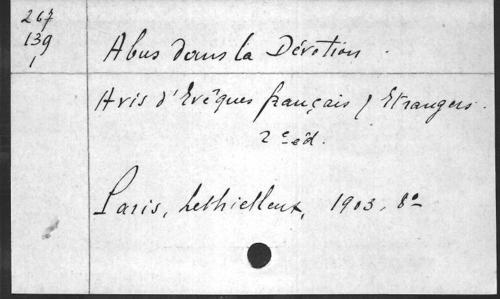 267
139
1
Abus dans la Dévotion.
Avis d'Evêques français / Etrangers.
2e éd.
Paris, Lethielleux, 1903, 8o